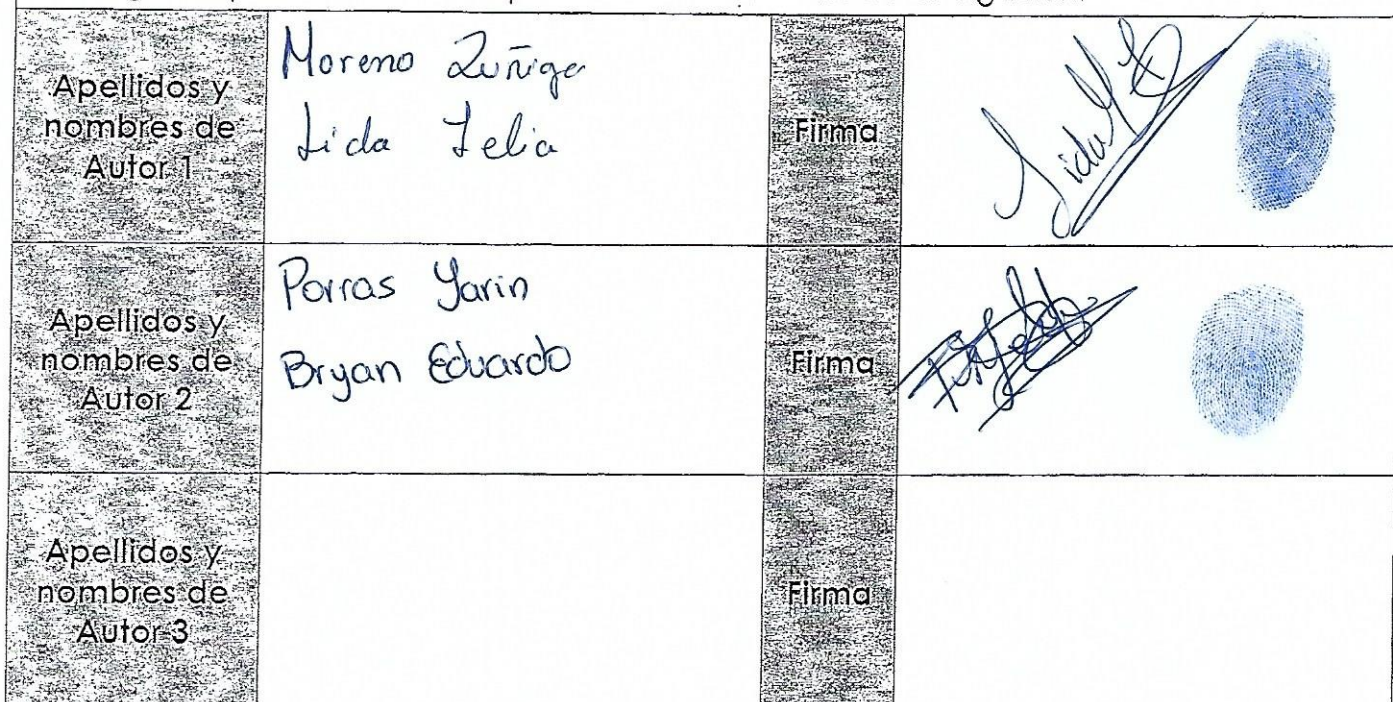 Apellidos y
nombres de
Autor 1
Moreno Zuñiga
Lida Lelia
Firma
Apellidos y
nombres de
Autor 2
Porras Yarin
Bryan Eduardo
Firma
Apellidos y
nombres de
Autor 3
Firma